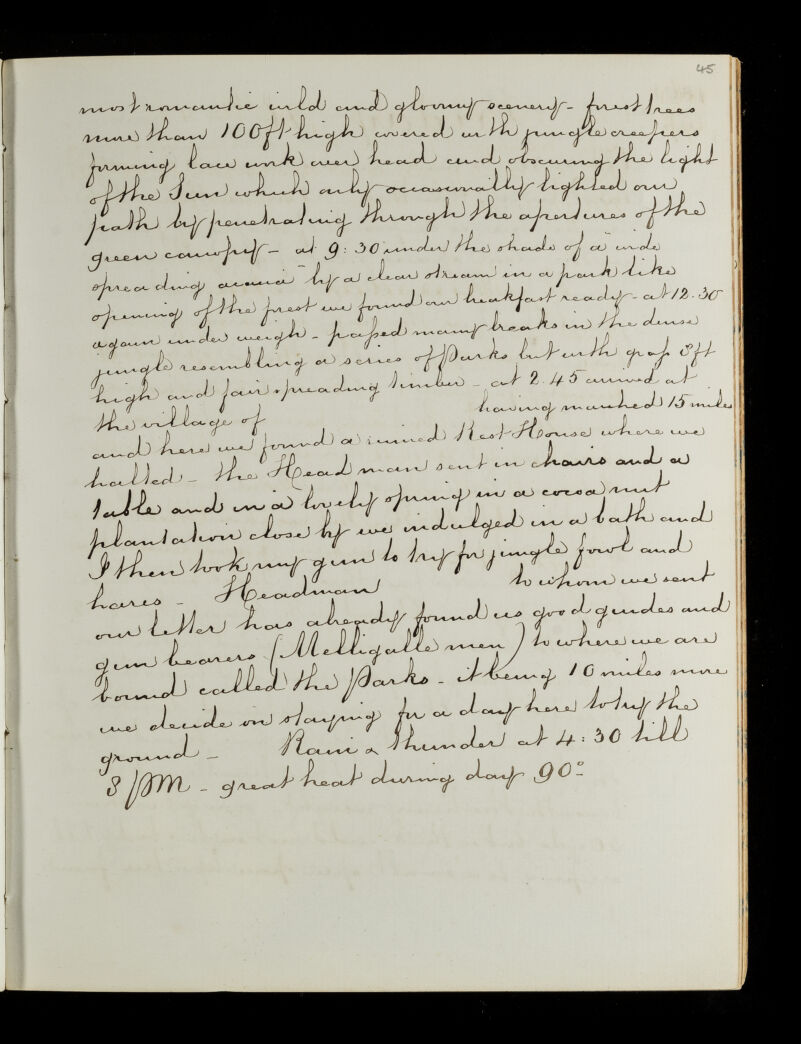 45
most romantic wild and gloomy scenery - forest trees
more than 100 ft high covered with jungle creepers
forming lace work over head and obscuring the light
of the Sun which only occasionally lighted our
path by penetrating through the apertures of the
green canopy - at 9:30 under the shade of a wide
spreading acacia by a clear stream in a park like
opening of the forest we found our breakfast ready - at 12.30
again under weigh - passed many breaks in the dense
jungle resembling a series of Parks but with grass 3 ft
high and fair spreading timber - at 2.45 arrived at
the village of having marched 15 miles
and here we found a ruined Rest House where we
halted - the Head man sent in chairs and a
table and in a lovely spring in a cocoa nut
plantation close by we indulged in a bath and
I then took my gun to try for jungle fowl and
hares - Headman to whom we sent
our letter has already found us good guides and
gun bearers (Melligalle men) to where we are
bound called the Parks - it being 10 miles more
we decide on staying for a day here to try the
ground - Rain & thunder at 4:30 till
8 PM - great heat during day 90°